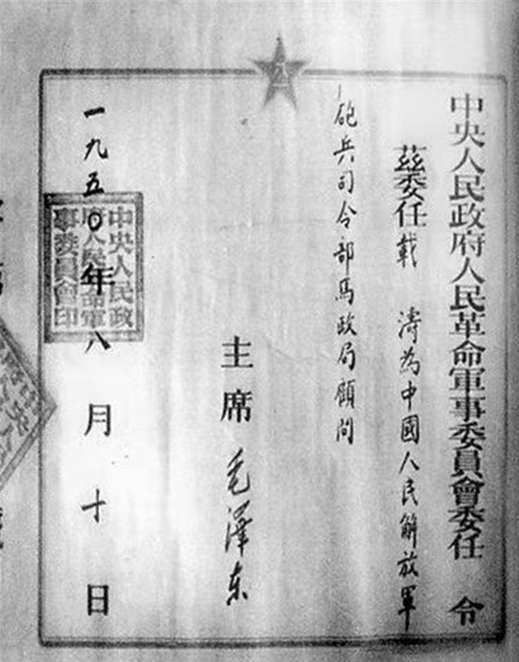 中央人民政府人民革命軍事委員會委任令
茲委任載濤為中國人民解放軍
砲兵司令部馬政局顧問
主席 毛泽东
一九五〇年八月十日
中央人民政
府人民革命軍
事委員會印
八一